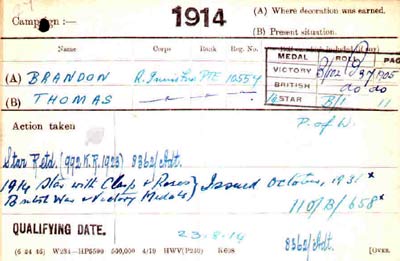 Campaign :— 1914 (A) Where decoration was earned.
(B) Present situation.
Name Corps Rank Reg. No. Roll on which included (if any)
MEDAL ROLL PAGE
(A) BRANDON R. Innis Fus PTE 10554 VICTORY B/102 B37 905
BRITISH do do
(B) THOMAS 14 STAR B/1 11
Action taken P. of W.
Star Retd. (992 K.R. 1923) 8362/Adt.
1914 Star with Clasp & Roses Issued October, 1931 x
British War & Victory Medals 110/B/658 x
QUALIFYING DATE. 23.8.14 8362/Adt.
(6 24 46) W234—HP5590 500,000 4/19 HWV(P240) K608 [OVER.